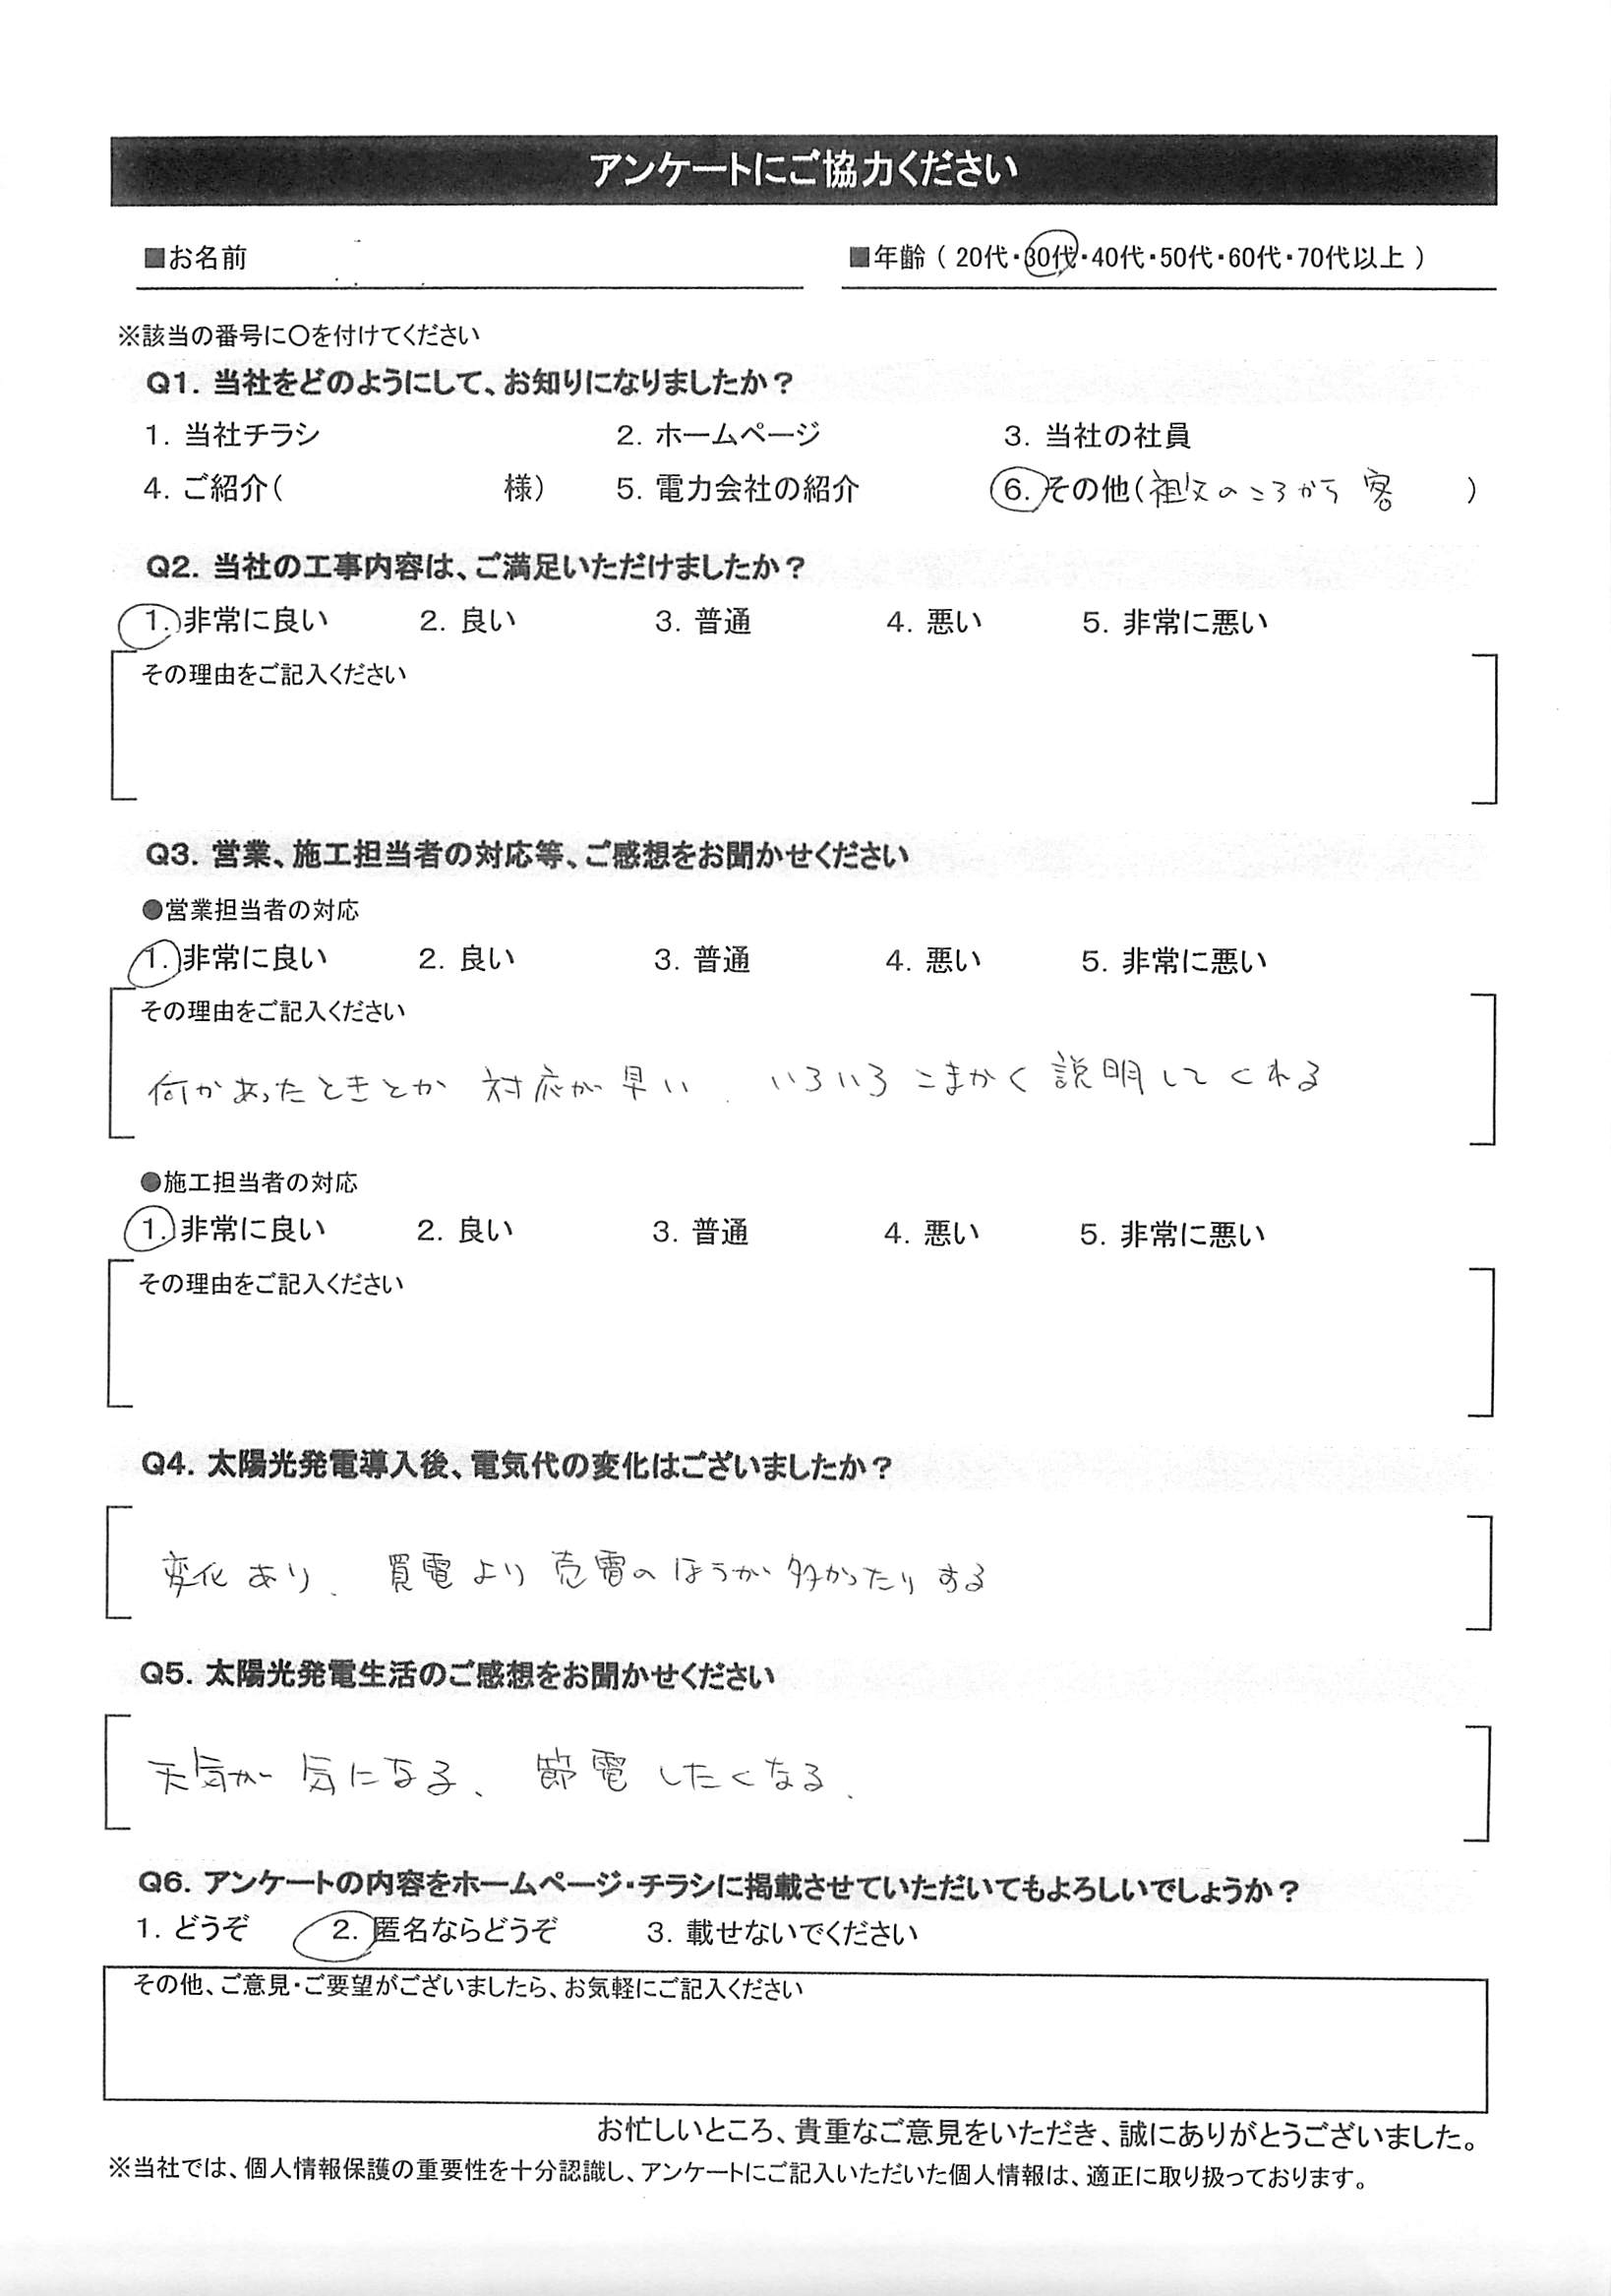 アンケートにご協力ください
■お名前
■年齢（ 20代・30代・40代・50代・60代・70代以上 ）
※該当の番号に〇を付けてください
Q1. 当社をどのようにして、お知りになりましたか？
1. 当社チラシ 2. ホームページ 3. 当社の社員
4. ご紹介（ 様） 5. 電力会社の紹介 6. その他（祖父のころから 客 ）
Q2. 当社の工事内容は、ご満足いただけましたか？
1. 非常に良い 2. 良い 3. 普通 4. 悪い 5. 非常に悪い
その理由をご記入ください
Q3. 営業、施工担当者の対応等、ご感想をお聞かせください
●営業担当者の対応
1. 非常に良い 2. 良い 3. 普通 4. 悪い 5. 非常に悪い
その理由をご記入ください
何かあったときとか 対応が早い、いろいろこまかく説明してくれる
●施工担当者の対応
1. 非常に良い 2. 良い 3. 普通 4. 悪い 5. 非常に悪い
その理由をご記入ください
Q4. 太陽光発電導入後、電気代の変化はございましたか？
変化あり、買電より売電のほうが多かったりする
Q5. 太陽光発電生活のご感想をお聞かせください
天気が気になる、節電したくなる、
Q6. アンケートの内容をホームページ・チラシに掲載させていただいてもよろしいでしょうか？
1. どうぞ 2. 匿名ならどうぞ 3. 載せないでください
その他、ご意見・ご要望がございましたら、お気軽にご記入ください
お忙しいところ、貴重なご意見をいただき、誠にありがとうございました。
※当社では、個人情報保護の重要性を十分認識し、アンケートにご記入いただいた個人情報は、適正に取り扱っております。